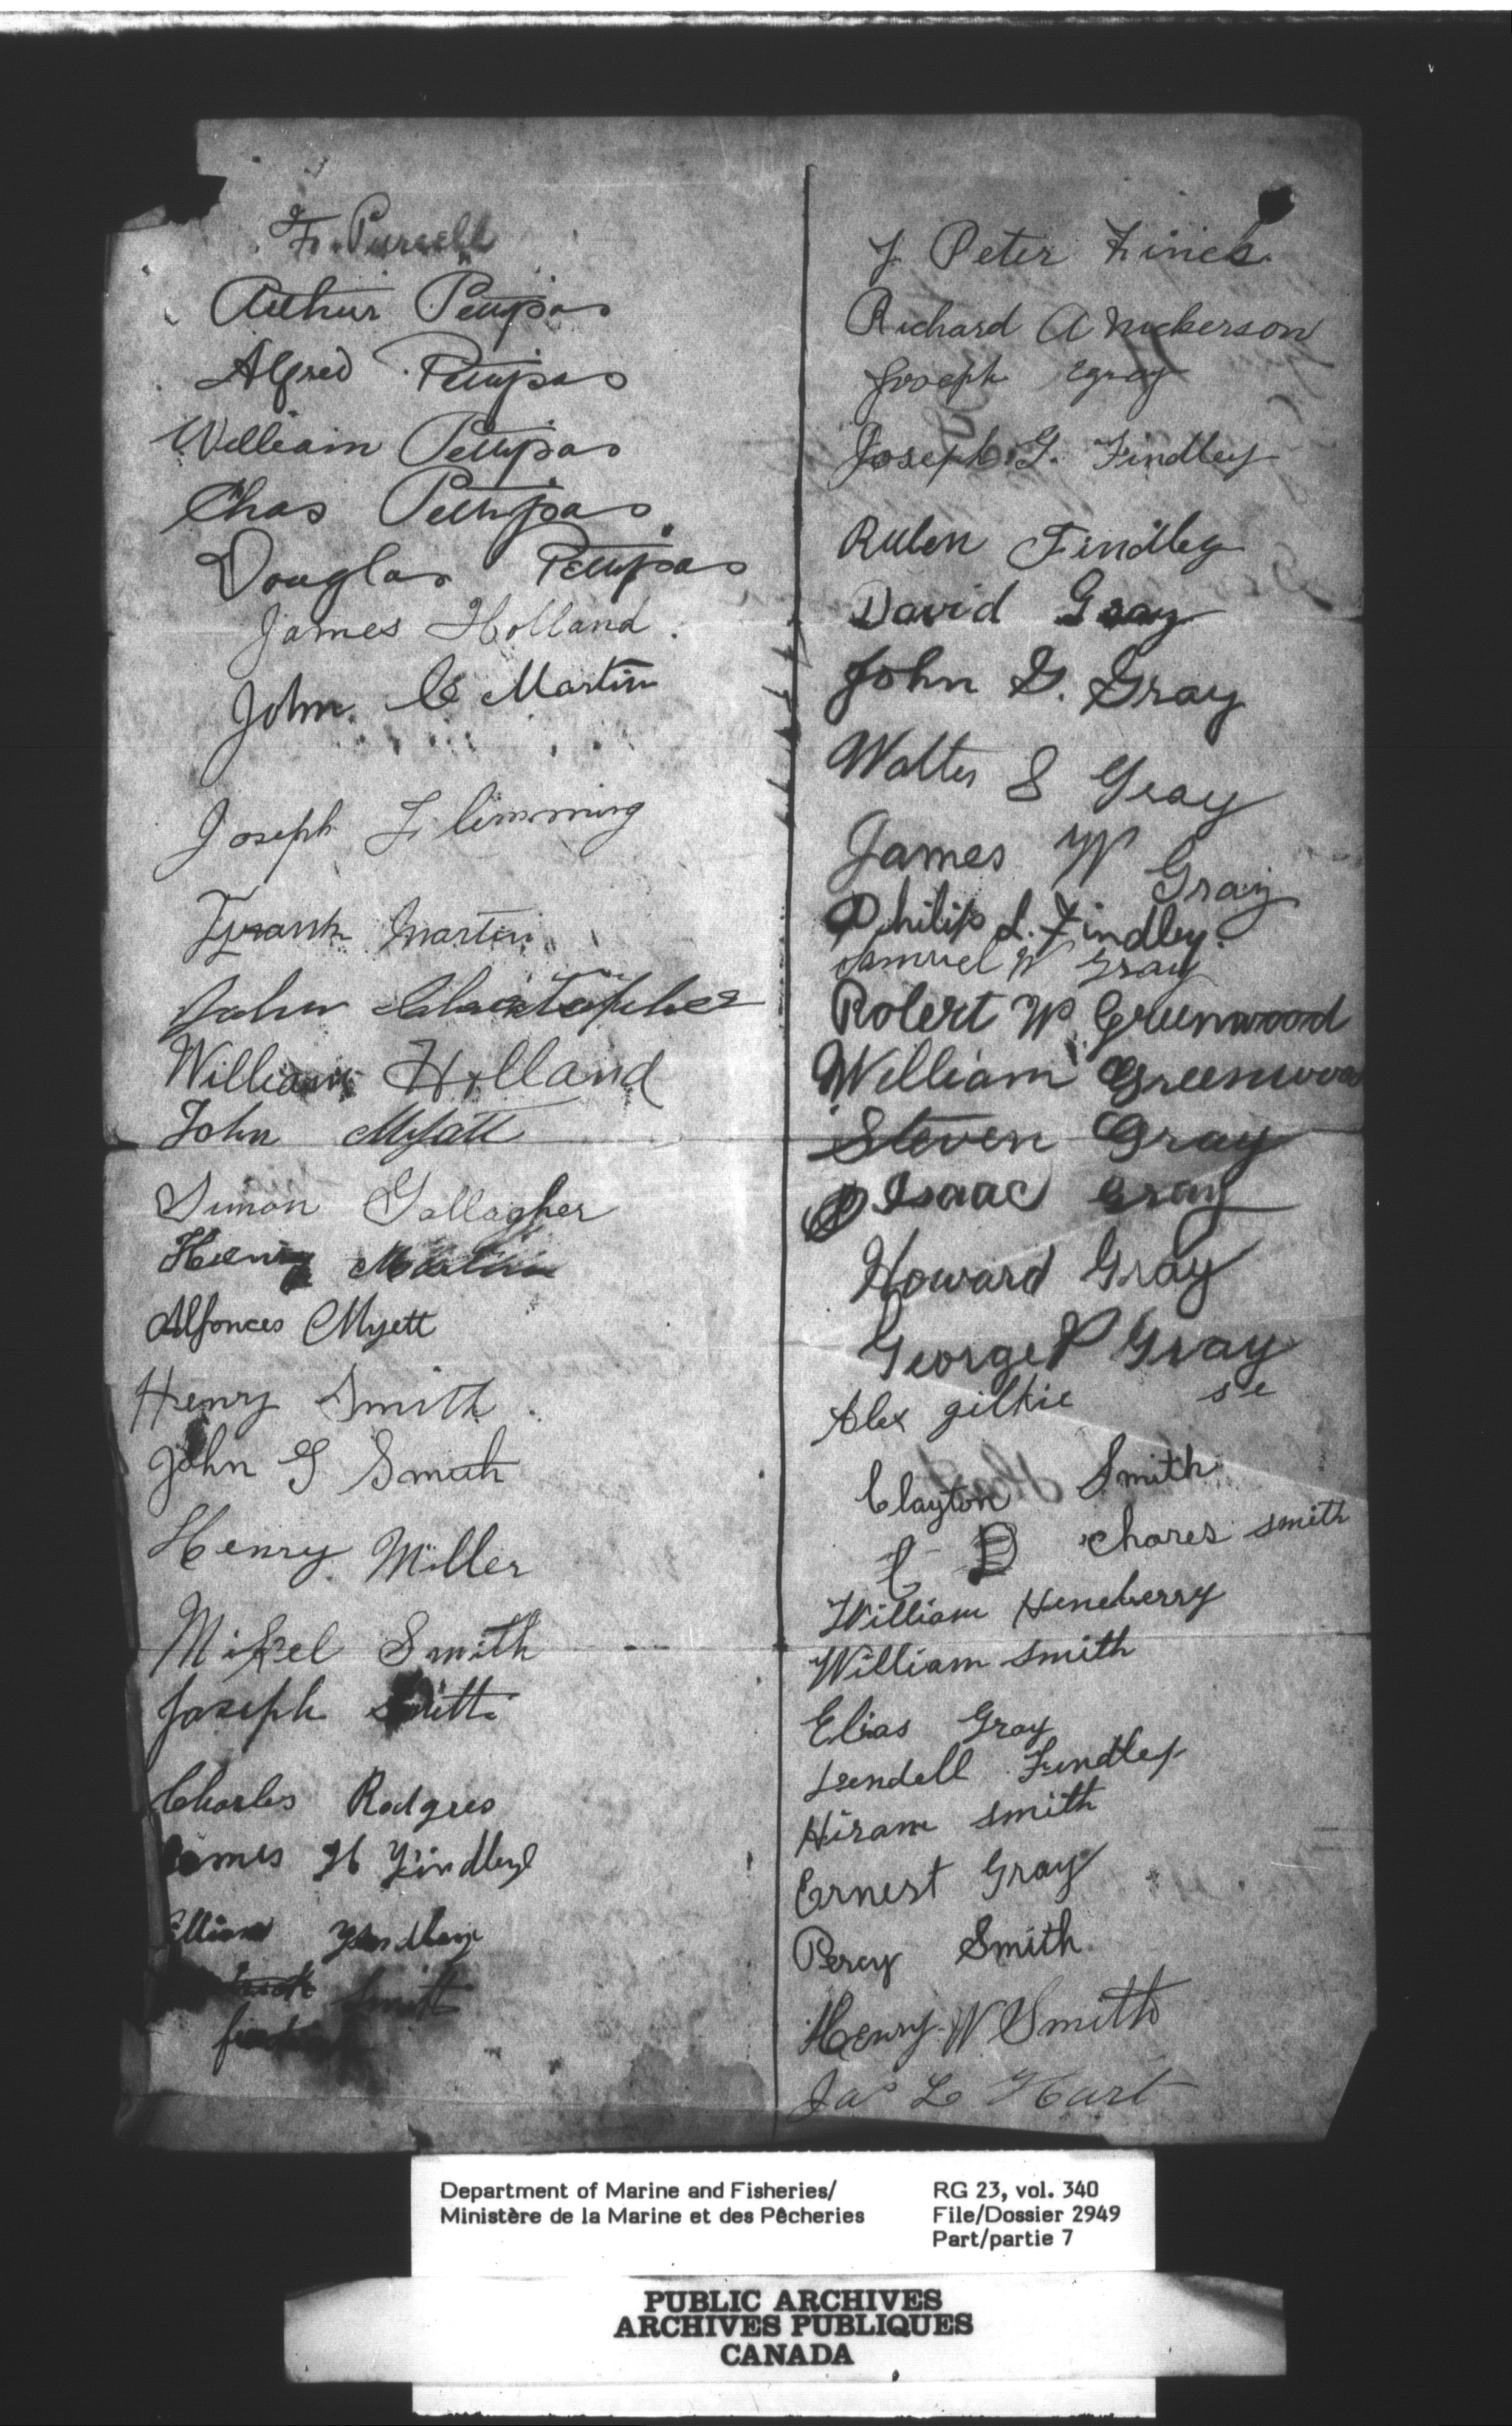 F. Purcell
Arthur Petitpas
Alfred Petitpas
William Petitpas
Chas Petitpas
Douglas Petitpas
James Holland.
John C Martin
Joseph Flimming
Frank Martin
John Christopher
William Holland
John Myatt
Simon Gallagher
Henry Martin
Alfonces Myett
Henry Smith.
John G Smith
Henry Miller
Mikel Smith
Joseph Smith
Charles Rodgres
James H Findley
Findley
Smith
J. Peter Zinck.
Richard A Nickerson
Joseph Gray
Joseph. G. Findley
Ruben Findley
David Gray
John G. Gray
Walter S Gray
James W Gray
Philip L. Findley.
Samuel W Gray
Robert W Greenwood
William Greenwood
Steven Gray
Isaac Gray
Howard Gray
George P Gray
Alex gilkie se
Clayton Smith
C D Chares Smith
William Heneberry
William Smith
Elias Gray
Lendell Findley
Hiram Smith
Ernest Gray
Percy Smith.
Henry W Smith
Jas L Hart
Department of Marine and Fisheries/
Ministère de la Marine et des Pêcheries
RG 23, vol. 340
File/Dossier 2949
Part/partie 7
PUBLIC ARCHIVES
ARCHIVES PUBLIQUES
CANADA